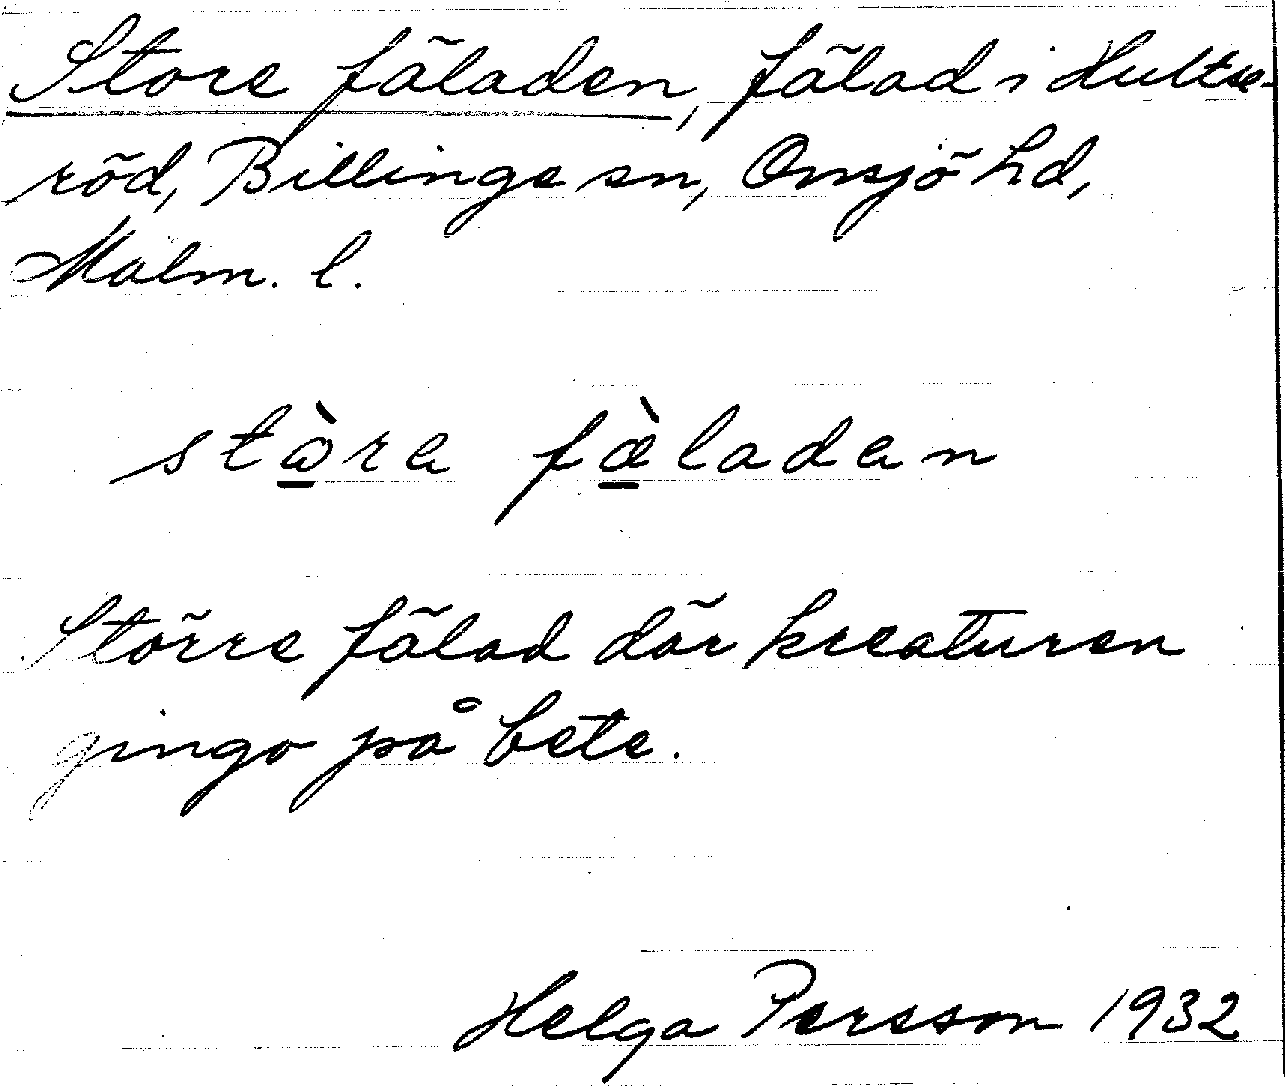 Store fäladen, fälad i Hultse-
röd, Billinge sn, Onsjö hd,
Malm. l.
stὼ̱ra fæ̱̀ladan
Större fälad där kreaturen
gingo på bete.
Helga Persson 1932